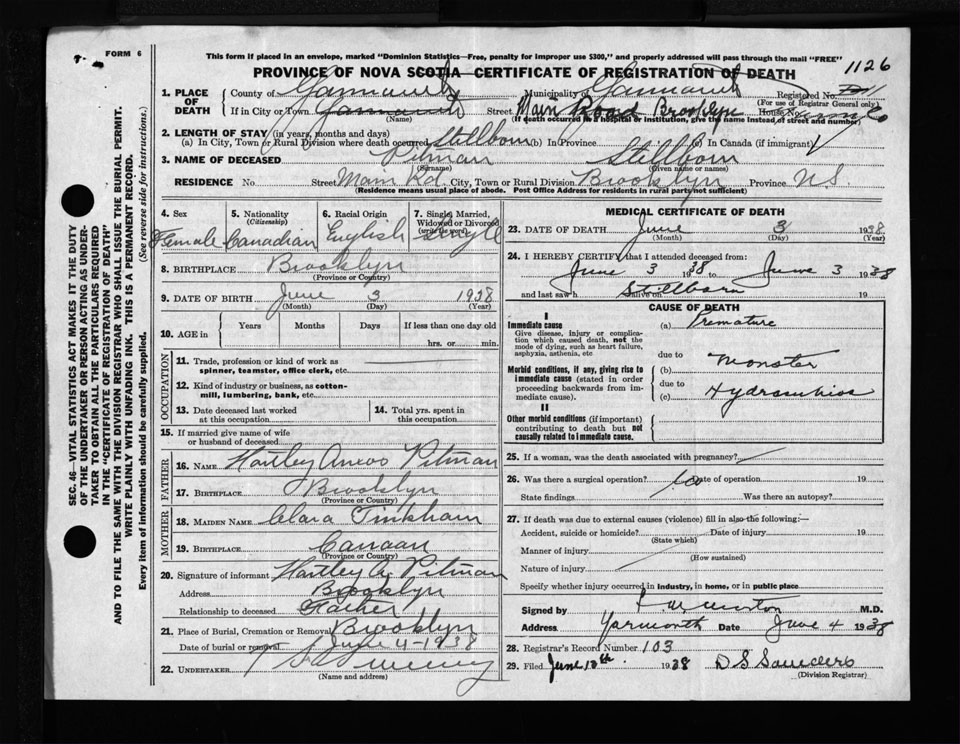 FORM 6
This form if placed in an envelope, marked "Dominion Statistics—Free, penalty for improper use $300," and properly addressed will pass through the mail "FREE"
PROVINCE OF NOVA SCOTIA—CERTIFICATE OF REGISTRATION OF DEATH
1126
1. PLACE OF DEATH
County of Yarmouth Municipality of Yarmouth Registered No.
(For use of Registrar General only)
If in City or Town Yarmouth Street Main Road Brooklyn House No.
(Name) (If death occurred in a hospital or institution, give the name instead of street and number)
2. LENGTH OF STAY (in years, months and days)
(a) In City, Town or Rural Division where death occurred Stillborn (b) In Province (c) In Canada (if immigrant)
3. NAME OF DECEASED Pitman Stillborn
(Surname) (Given name or names)
RESIDENCE No Street Main Rd. City, Town or Rural Division Brooklyn Province N.S.
(Residence means usual place of abode. Post Office Address for residents in rural parts not sufficient)
4. Sex Female
5. Nationality (Citizenship) Canadian
6. Racial Origin English
7. Single, Married, Widowed or Divorced (write the word) Single
8. BIRTHPLACE Brooklyn
(Province or Country)
9. DATE OF BIRTH June 3 1938
(Month) (Day) (Year)
10. AGE in Years Months Days If less than one day old
hrs. or min.
OCCUPATION
11. Trade, profession or kind of work as spinner, teamster, office clerk, etc.
12. Kind of industry or business, as cotton-mill, lumbering, bank, etc.
13. Date deceased last worked at this occupation
14. Total yrs. spent in this occupation
15. If married give name of wife or husband of deceased
FATHER
16. NAME Hartley Pitman
17. BIRTHPLACE Brooklyn
(Province or Country)
MOTHER
18. MAIDEN NAME Clara Tinkham
19. BIRTHPLACE Canaan
(Province or Country)
20. Signature of informant Hartley A. Pitman
Address Brooklyn
Relationship to deceased Father
21. Place of Burial, Cremation or Removal Brooklyn
Date of burial or removal June 4-1938
22. UNDERTAKER
(Name and address)
MEDICAL CERTIFICATE OF DEATH
23. DATE OF DEATH June 3 1938
(Month) (Day) (Year)
24. I HEREBY CERTIFY that I attended deceased from:
June 3 1938 to June 3 1938
and last saw h alive on Stillborn 19
CAUSE OF DEATH
I
Immediate cause (a) Premature
Give disease, injury or complication which caused death, not the mode of dying, such as heart failure, asphyxia, asthenia, etc
due to
Morbid conditions, if any, giving rise to immediate cause (stated in order proceeding backwards from immediate cause) (b) Monster
due to
(c)
II
Other morbid conditions (if important) contributing to death but not causally related to immediate cause.
25. If a woman, was the death associated with pregnancy?
26. Was there a surgical operation? No Date of operation 19
State findings Was there an autopsy?
27. If death was due to external causes (violence) fill in also the following:—
Accident, suicide or homicide? Date of injury 19
(State which)
Manner of injury
(How sustained)
Nature of injury
Specify whether injury occurred in industry, in home, or in public place
Signed by M.D.
Address Yarmouth Date June 4 1938
28. Registrar's Record Number 103
29. Filed June 13th. 1938 D S Saunders
(Division Registrar)
SEC. 46—VITAL STATISTICS ACT MAKES IT THE DUTY
OF THE UNDERTAKER OR PERSON ACTING AS UNDERTAKER TO OBTAIN ALL THE PARTICULARS REQUIRED
IN THE "CERTIFICATE OF REGISTRATION OF DEATH"
AND TO FILE THE SAME WITH THE DIVISION REGISTRAR WHO SHALL ISSUE THE BURIAL PERMIT.
WRITE PLAINLY WITH UNFADING INK. THIS IS A PERMANENT RECORD.
Every item of information should be carefully supplied. (See reverse side for instructions.)